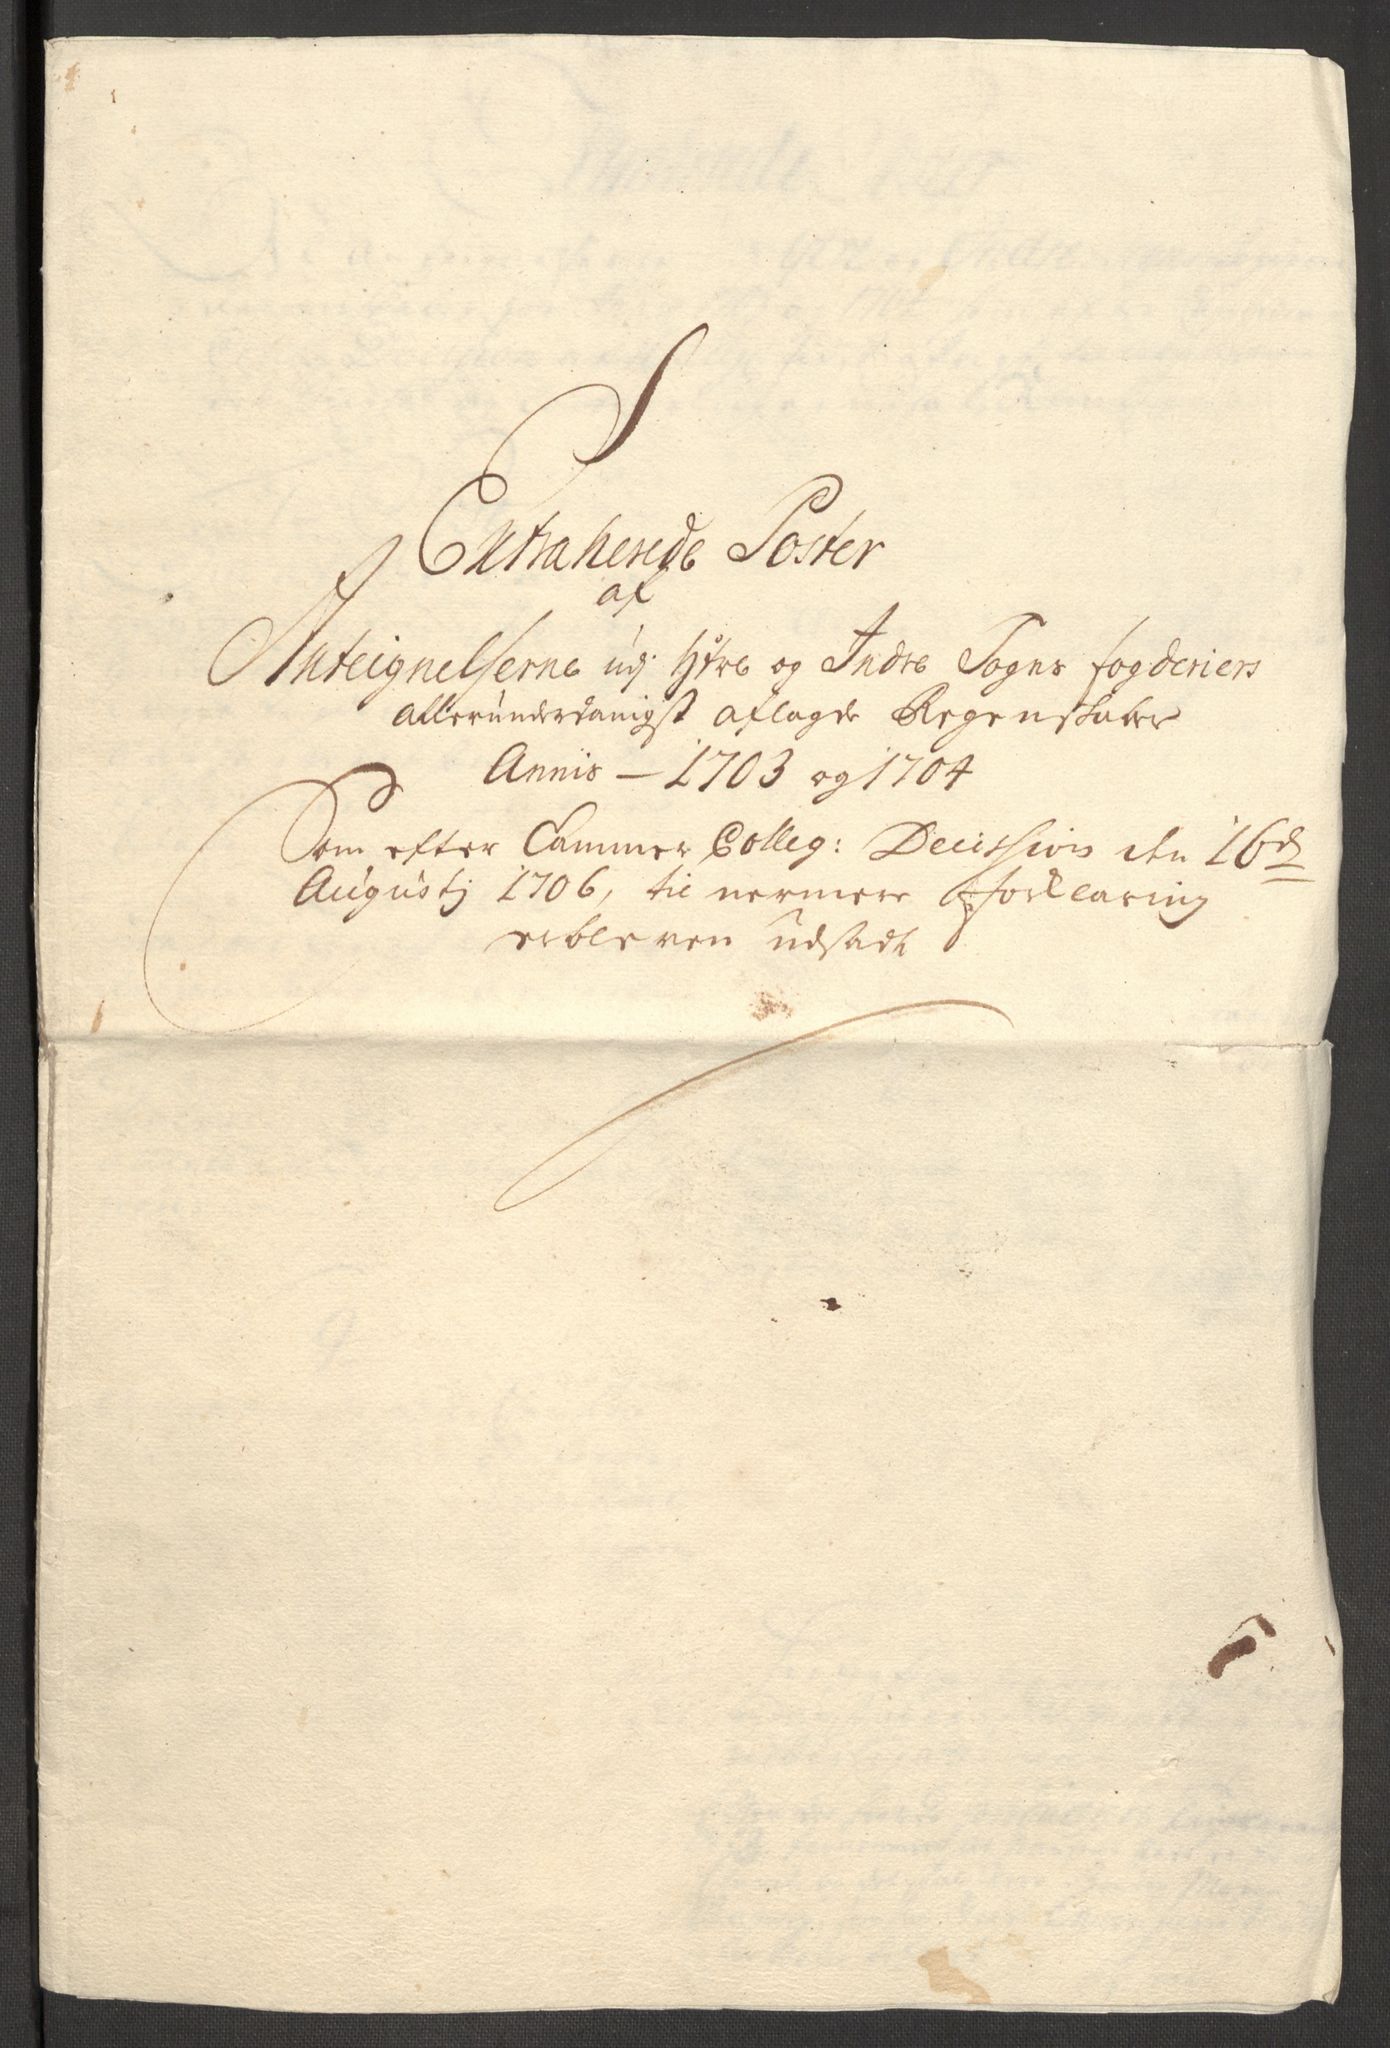 Extraherede Poster
af
Anteignelserne udj Yttre og Indre Sogns fogderiers
allerunderdanigst aflagde Regenskaber
Annis – 1703 og 1704
Som efter Cammer Colleg: Decission den 16d
Augustj 1706, til nermere forklaring
erbleven udsadt